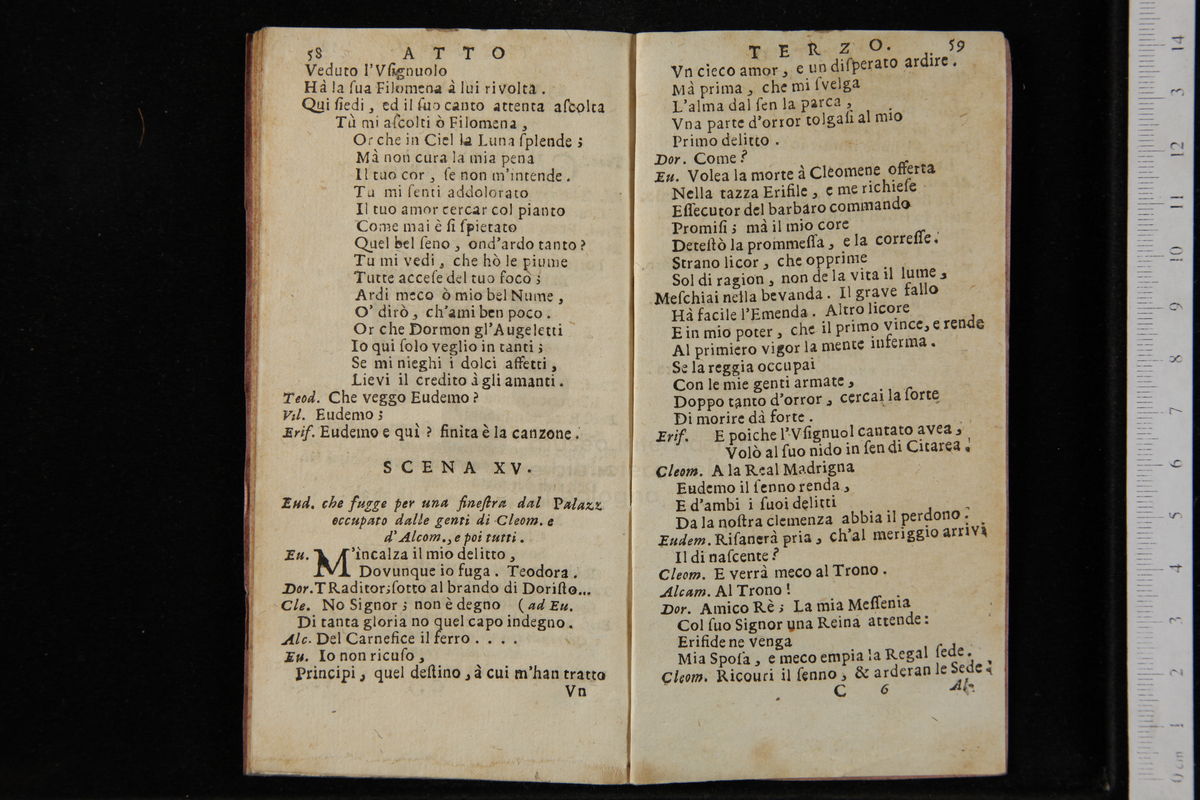 58 ATTO
Veduto l'Vſignuolo
Hà la ſua Filomena à lui rivolta .
Qui ſiedi , ed il ſuo canto attenta aſcolta
Tù mi aſcolti ò Filomena ,
Or che in Ciel la Luna ſplende ;
Mà non cura la mia pena
Il tuo cor , ſe non m'intende .
Tu mi ſenti addolorato
Il tuo amor cercar col pianto
Come mai è ſi ſpietato
Quel bel ſeno , ond'ardo tanto ?
Tu mi vedi , che hò le piume
Tutte acceſe del tuo foco ;
Ardi meco ò mio bel Nume ,
O' dirò , ch'ami ben poco .
Or che Dormon gl'Augeletti
Io qui ſolo veglio in tanti ;
Se mi nieghi i dolci affetti ,
Lievi il credito à gli amanti .
Teod. Che veggo Eudemo ?
Vil. Eudemo ;
Erif. Eudemo e quì ? finita è la canzone .
SCENA XV.
Eud. che fugge per una fineſtra dal Palazz
occupato dalle genti di Cleom. e
d'Alcom., e poi tutti .
Eu. M'incalza il mio delitto ,
Dovunque io fuga . Teodora .
Dor. TRaditor; ſotto al brando di Doriſto...
Cle. No Signor ; non è degno ( ad Eu.
Di tanta gloria no quel capo indegno .
Alc. Del Carnefice il ferro . . . .
Eu. Io non ricuſo ,
Principi , quel deſtino , à cui m'han tratto
Vn
TERZO. 59
Vn cieco amor , e un diſperato ardire .
Mà prima , che mi ſvelga
L'alma dal ſen la parca ,
Vna parte d'orror tolgaſi al mio
Primo delitto .
Dor. Come ?
Eu. Volea la morte à Cleomene offerta
Nella tazza Erifile , e me richieſe
Eſſecutor del barbaro commando
Promiſi ; mà il mio core
Deteſtò la prommeſſa , e la correſſe .
Strano licor , che opprime
Sol di ragion , non de la vita il lume ,
Meſchiai nella bevanda . Il grave fallo
Hà facile l'Emenda . Altro licore
E in mio poter , che il primo vince, e rende
Al primiero vigor la mente inferma .
Se la reggia occupai
Con le mie genti armate ,
Doppo tanto d'orror , cercai la ſorte
Di morire dà forte .
Erif. E poiche l'Vſignuol cantato avea ,
Volò al ſuo nido in ſen di Citarea .
Cleom. A la Real Madrigna
Eudemo il ſenno renda ,
E d'ambi i ſuoi delitti
Da la noſtra clemenza abbia il perdono .
Eudem. Riſanerà pria , ch'al meriggio arrivi
Il di naſcente ?
Cleom. E verrà meco al Trono .
Alcam. Al Trono !
Dor. Amico Rè ; La mia Meſſenia
Col ſuo Signor una Reina attende :
Erifide ne venga
Mia Spoſa , e meco empia la Regal ſede .
Cleom. Ricouri il ſenno , & arderan le Sede
C 6 Al-
0 cm 1 2 3 4 5 6 7 8 9 10 11 12 3 14